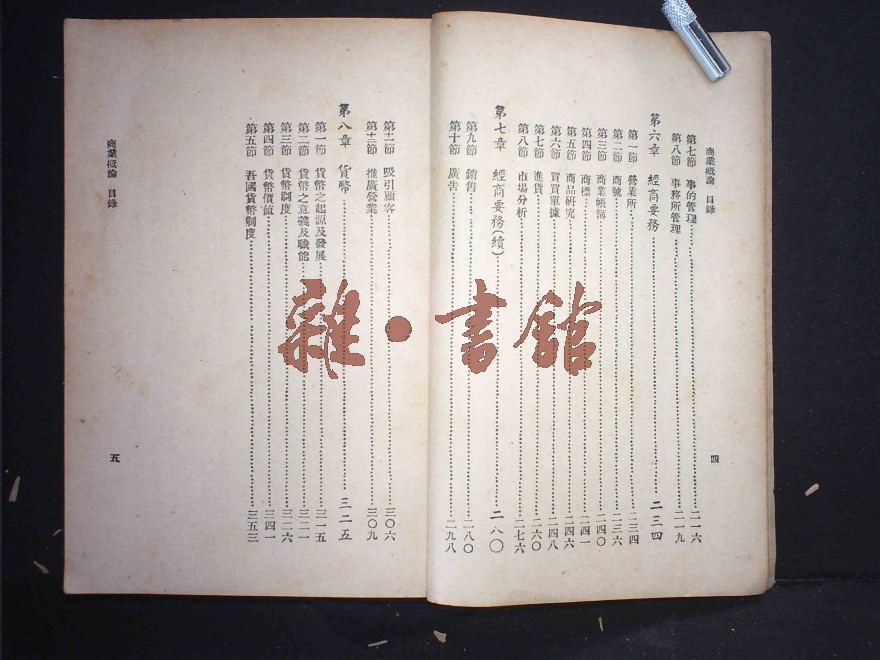 商業概論 目錄
第七節 事的管理……二一六
第八節 事務所管理……二一九
第六章 經商要務……二三四
第一節 營業所……二三四
第二節 商號……二三六
第三節 商業帳簿……二四〇
第四節 商標……二四一
第五節 商品研究……二四六
第六節 買賣單據……二四八
第七節 進貨……二六〇
第八節 市場分析……二七六
第七章 經商要務(續)……二八〇
第九節 銷售……二八〇
第十節 廣告……二九八
四
第十一節 吸引顧客……三〇六
第十二節 推廣營業……三〇九
第八章 貨幣……三二五
第一節 貨幣之起源及發展……三一五
第二節 貨幣之意義及職能……三二一
第三節 貨幣制度……三二六
第四節 貨幣價值……三四一
第五節 吾國貨幣制度……三五三
商業概論 目錄
五
雜·書館